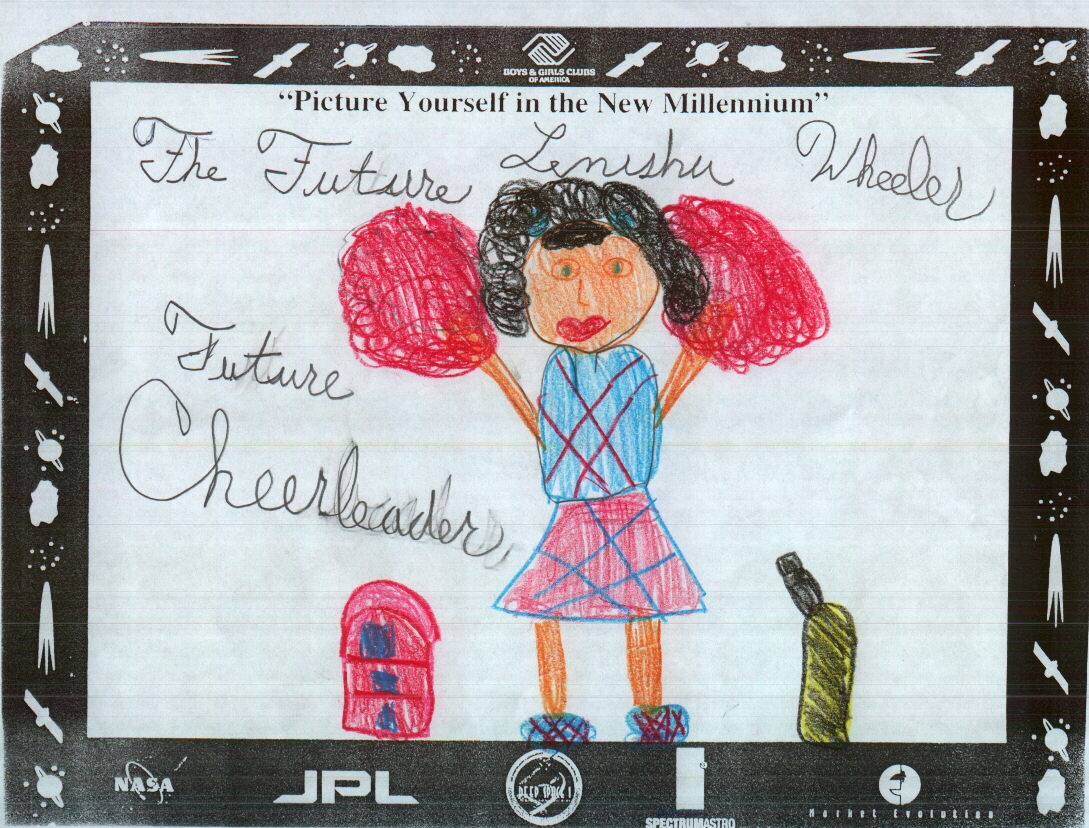 BOYS & GIRLS CLUBS
OF AMERICA
“Picture Yourself in the New Millennium”
The Future Lenishu Wheeler
Future
Cheerleader,
NASA
JPL
DEEP SPACE 1
SPECTRUMASTRO
Market Evolution